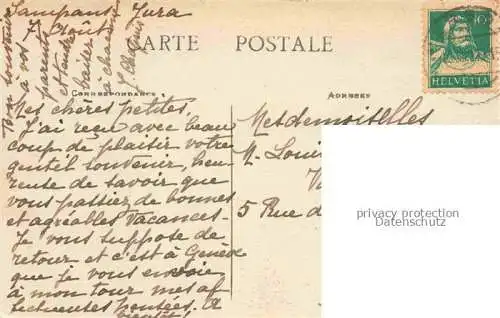 Sampans Jura
7 Août
CARTE POSTALE
10
HELVETIA
CORRESPONDANCE
ADRESSE
Mes chères petites
J'ai reçu avec beau
coup de plaisir votre
gentil souvenir, heu-
reuse de savoir que
vous passiez de bonnes
et agréables vacances.
Je vous suppose de
retour et c'est à Genève
que je vous envoie
à mon tour mes af
fectueuses pensées. A
bientôt!
Bon souvenir
à vos
parents
et tendre
baiser
à chacune
Mesdemoiselles
M. Loui
5 Rue d
privacy protection
Datenschutz